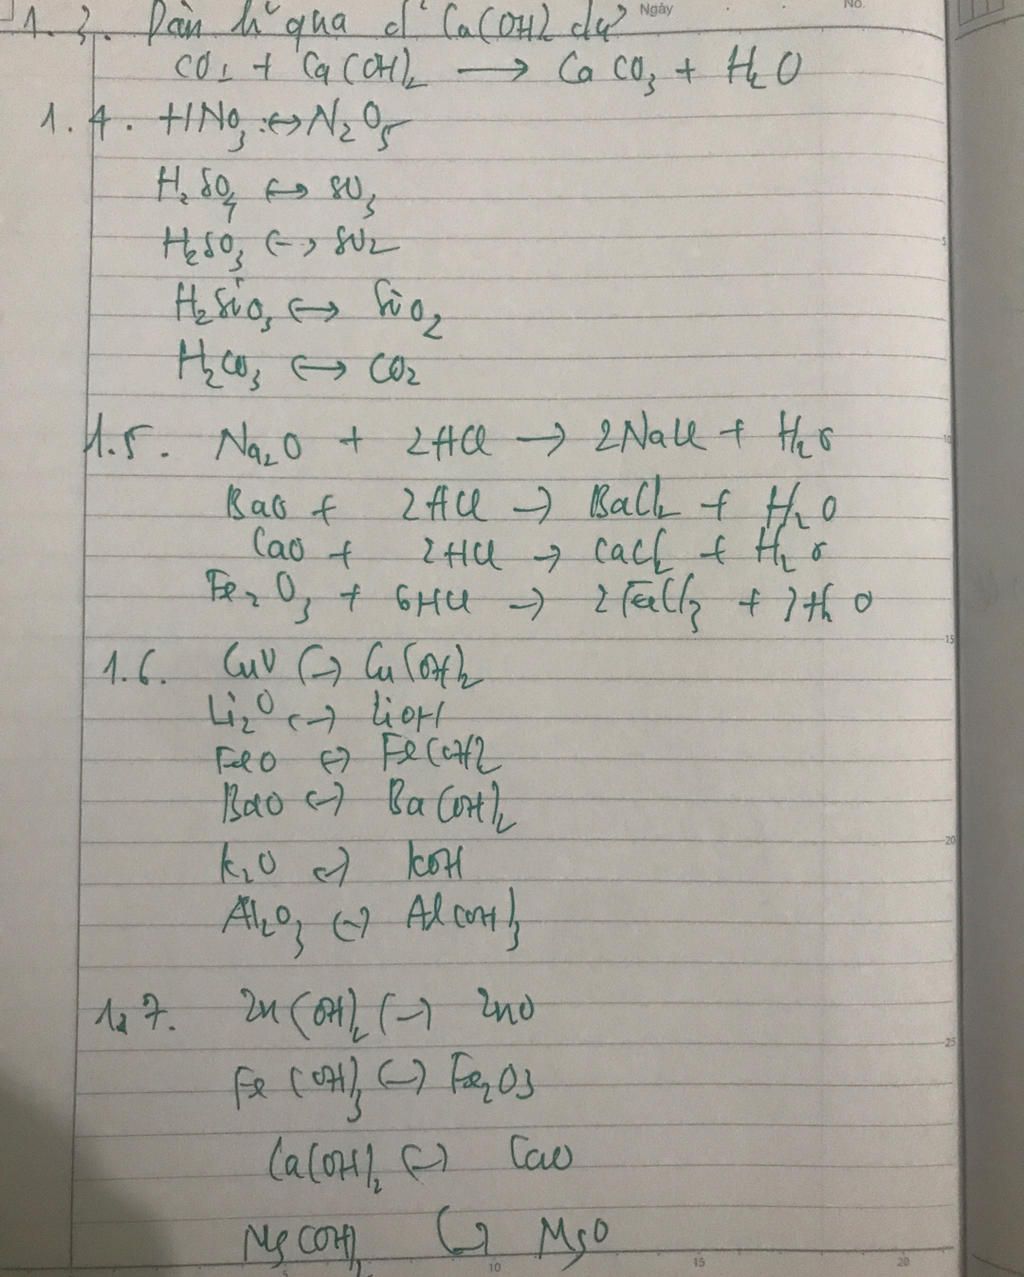 Ngày No.
1.3. Dẫn h² qua d² Ca(OH)2 dư
CO2 + Ca(OH)2 → CaCO3 + H2O
1.4. HNO3 ↔ N2O5
H2SO4 ↔ SO3
H2SO3 ↔ SO2
H2SiO3 ↔ SiO2
H2CO3 ↔ CO2
1.5. Na2O + 2HCl → 2NaCl + H2O
BaO + 2HCl → BaCl2 + H2O
CaO + 2HCl → CaCl2 + H2O
Fe2O3 + 6HCl → 2FeCl3 + 3H2O
1.6. CuO ↔ Cu(OH)2
Li2O ↔ LiOH
FeO ↔ Fe(OH)2
BaO ↔ Ba(OH)2
K2O ↔ KOH
Al2O3 ↔ Al(OH)3
1.7. Zn(OH)2 ↔ ZnO
Fe(OH)3 ↔ Fe2O3
Ca(OH)2 ↔ CaO
Mg(OH)2 ↔ MgO
5 10 15 20